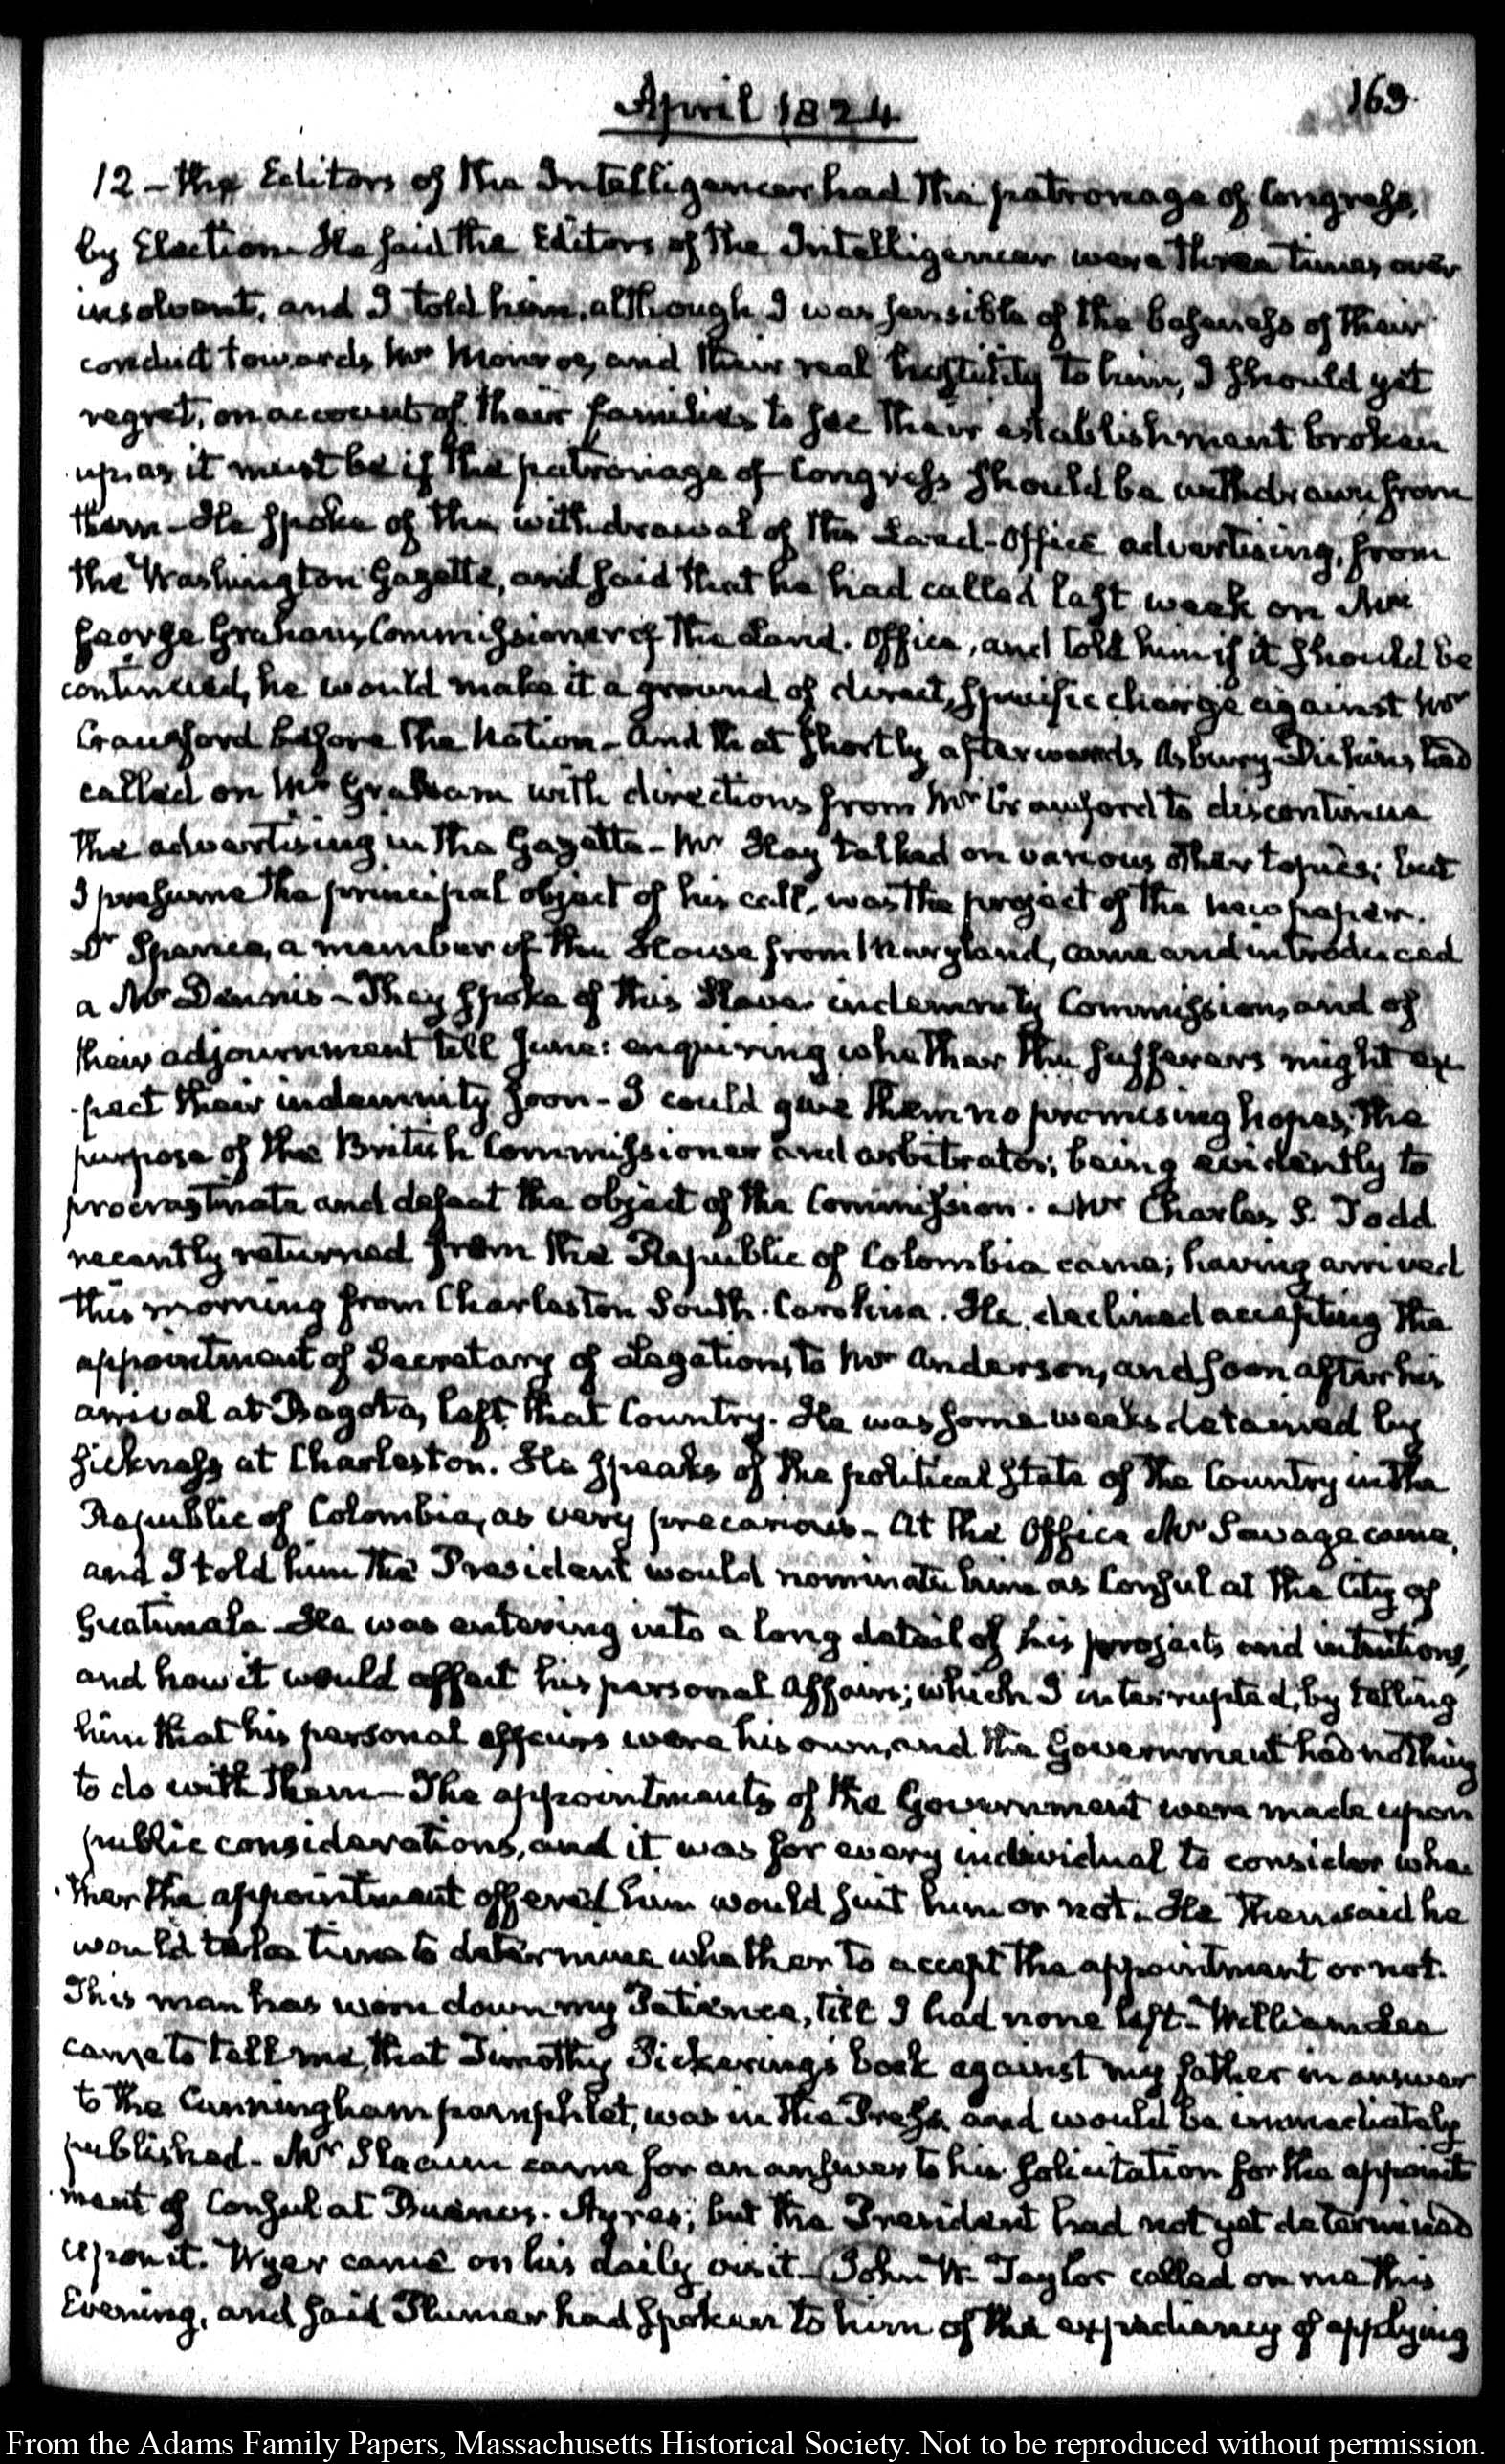 April 1824
163.
12 - the Editors of the Intelligencer had the patronage of Congress,
by Election. He said the Editors of the Intelligencer were three times over
insolvent, and I told him, although I was sensible of the baseness of their
conduct towards Mr Monroe, and their real hostility to him, I should yet
regret, on account of their families to see their establishment broken
up, as it must be if the patronage of Congress should be withdrawn from
them - He spoke of the withdrawal of the Land-Office advertising, from
the Washington Gazette, and said that he had called last week on Mr
George Graham, Commissioner of the Land-Office, and told him if it should be
continued, he would make it a ground of direct, specific charge against Mr
Crawford before the Nation - And that shortly afterwards Asbury Dickins had
called on Mr Graham with directions from Mr Crawford to discontinue
the advertising in the Gazette - Mr Hay talked on various other topics; but
I presume the principal object of his call, was the project of the newspaper.
Dr Spence, a member of the House from Maryland, came and introduced
a Mr Dennis - They spoke of this Slave indemnity Commission, and of
their adjournment till June: enquiring whether the sufferers might ex-
-pect their indemnity soon - I could give them no promising hopes; the
purpose of the British Commissioner and arbitrator, being evidently to
procrastinate and defeat the object of the Commission. Mr Charles S. Todd
recently returned from the Republic of Colombia came; having arrived
this morning from Charleston South-Carolina. He declined accepting the
appointment of Secretary of Legation, to Mr Anderson, and soon after his
arrival at Bogota, left that Country. He was some weeks detained by
sickness at Charleston. He speaks of the political state of the Country in the
Republic of Colombia, as very precarious - At the Office Mr Savage came,
and I told him the President would nominate him as Consul at the City of
Guatimala. He was entering into a long detail of his projects and intentions,
and how it would affect his personal affairs; which I interrupted, by telling
him that his personal affairs were his own, and the Government had nothing
to do with them - The appointments of the Government were made upon
public considerations, and it was for every individual to consider whe-
-ther the appointment offered him would suit him or not. He then said he
would take time to determine whether to accept the appointment or not.
This man has worn down my Patience, till I had none left - William Lee
came to tell me, that Timothy Pickering's book against my father in answer
to the Cunningham pamphlet, was in the Press and would be immediately
published - Mr Slacum came for an answer to his solicitation for the appoint-
-ment of Consul at Buenos-Ayres; but the President had not yet determined
upon it. Wyer came on his daily visit - John W. Taylor called on me this
Evening, and said Plumer had spoken to him of the expediency of applying
From the Adams Family Papers, Massachusetts Historical Society. Not to be reproduced without permission.